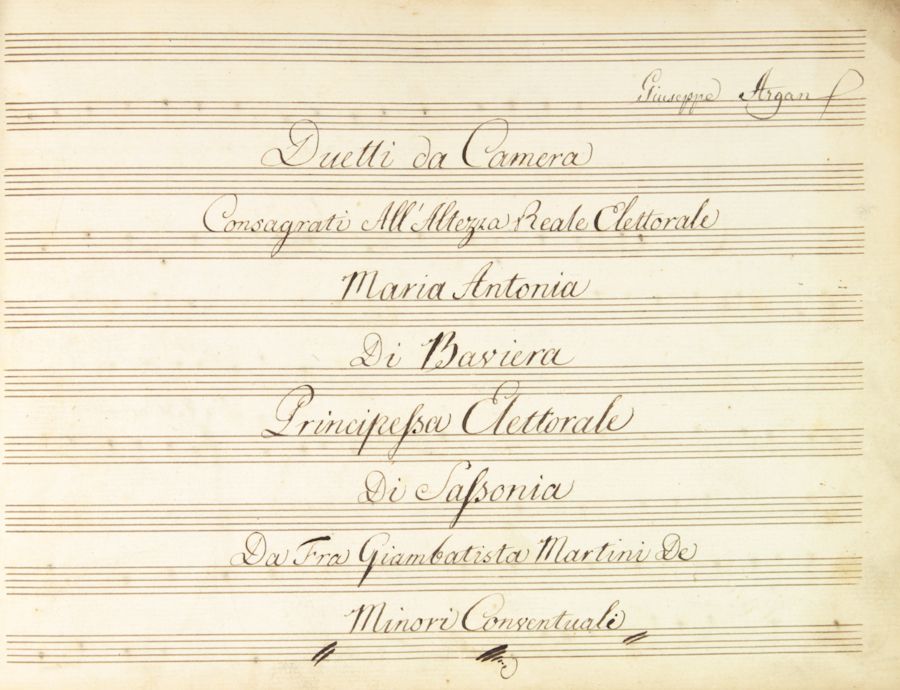 Giuseppe Argan
Duetti da Camera
Consagrati All'Altezza Reale Elettorale
Maria Antonia
Di Baviera
Principeſsa Elettorale
Di Saſsonia
Da Fra Giambatista Martini De
Minori Conventuali